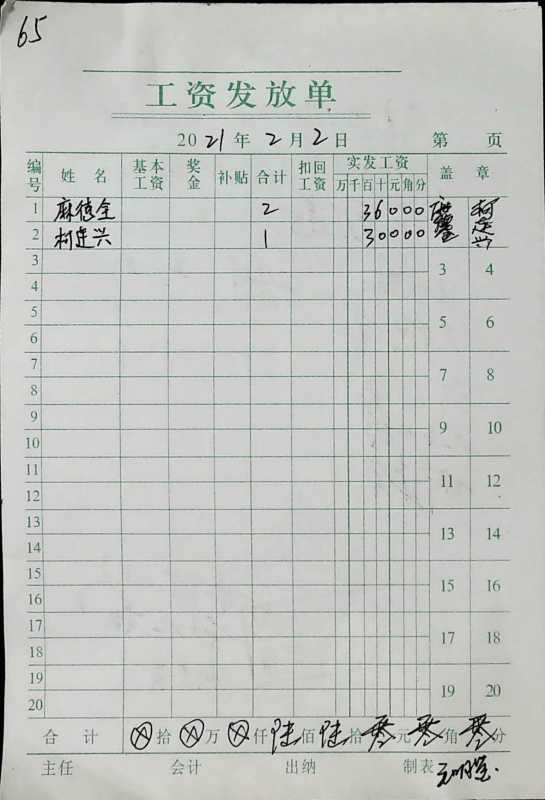 65
工资发放单
2021年2月2日 第 页
编号 姓名 基本工资 奖金 补贴 合计 扣回工资 实发工资 万千百十元角分 盖章
1 麻德全 2 36000
2 柯建兴 1 30000 柯建兴
3 3 4
4
5 5 6
6
7 7 8
8
9 9 10
10
11 11 12
12
13 13 14
14
15 15 16
16
17 17 18
18
19 19 20
20
合计 ⊗拾⊗万⊗仟陆佰陆拾零元零角零分
主任 会计 出纳 制表